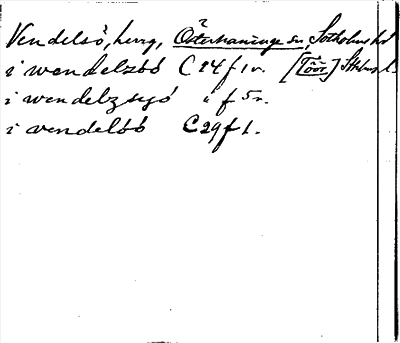 Vendelsö, herrg, Österhaninge sn, Sotholms hd
i wendelzöö C 24 f 1 v. [Töör] Sthlms l.
i wendelzsyö " f 5 r.
i vendelöö C 29 f 1.